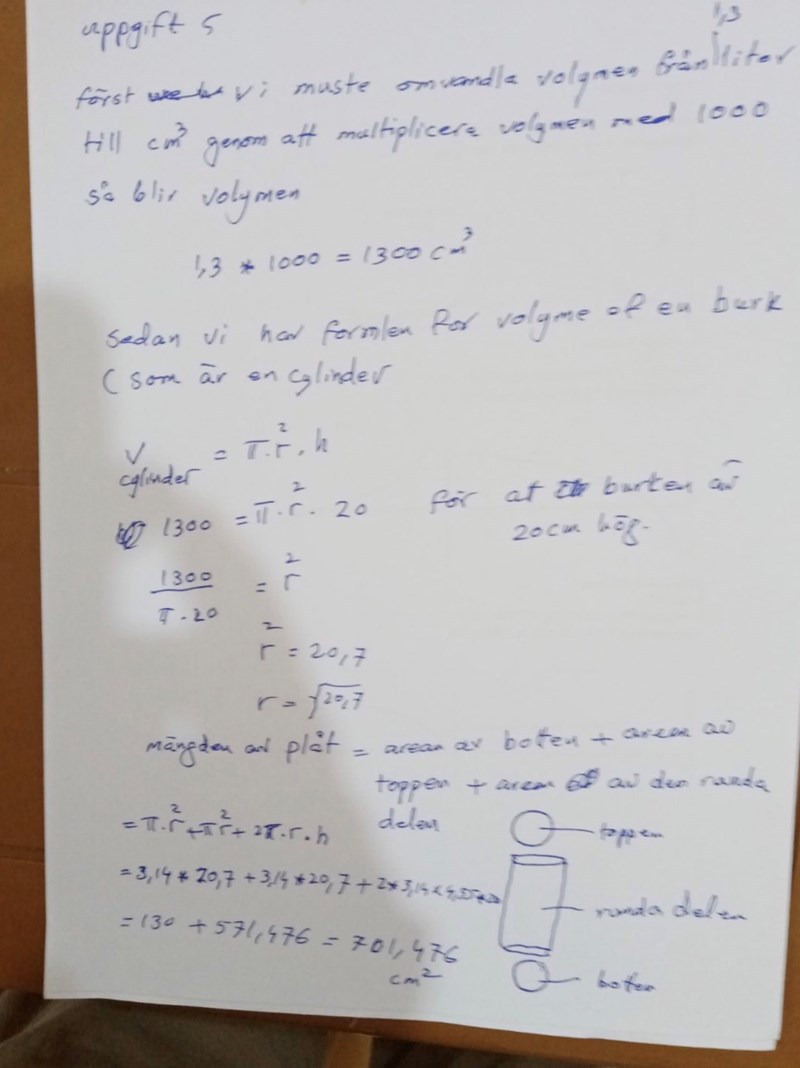 uppgift 5
1,3
först vi muste omvandla volymen från liter
till cm³ genom att multiplicera volymen med 1000
så blir volymen
1,3 * 1000 = 1300 cm³
sedan vi har formlen for volyme of en burk
( som är en cylinder
V cylinder = π.r². h
1300 = π.r². 20 för at burken är
20cm hög.
1300 / π.20 = r²
r² = 20,7
r = √20,7
mängden av plåt = arean av botten + arean av
toppen + arean av den runda
delen
= π.r² + πr² + 2π.r.h
toppen
= 3,14 * 20,7 + 3,14 * 20,7 + 2 * 3,14 * 4,55 * 20
runda delen
= 130 + 571,476 = 701,476
cm²
boten